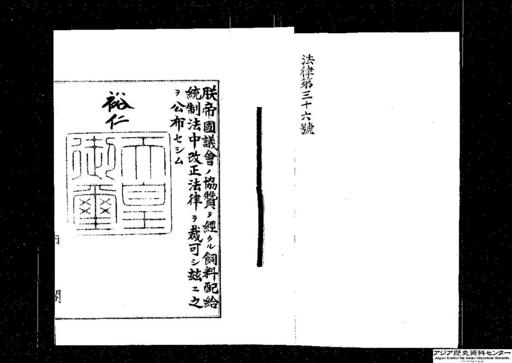 法律第三十六號
朕帝國議會ノ協贊ヲ經タル飼料配給
統制法中改正法律ヲ裁可シ玆ニ之
ヲ公布セシム
裕仁
天皇
御璽
内閣
アジア歴史資料センター
Japan Center for Asian Historical Records